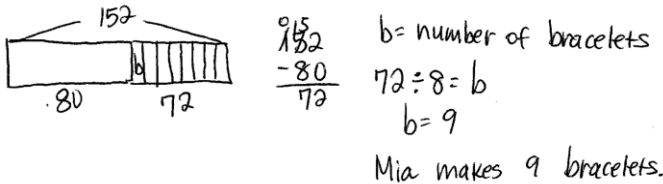 152
b
80
72
0 15
152
-80
72
b = number of bracelets
72 ÷ 8 = b
b = 9
Mia makes 9 bracelets.